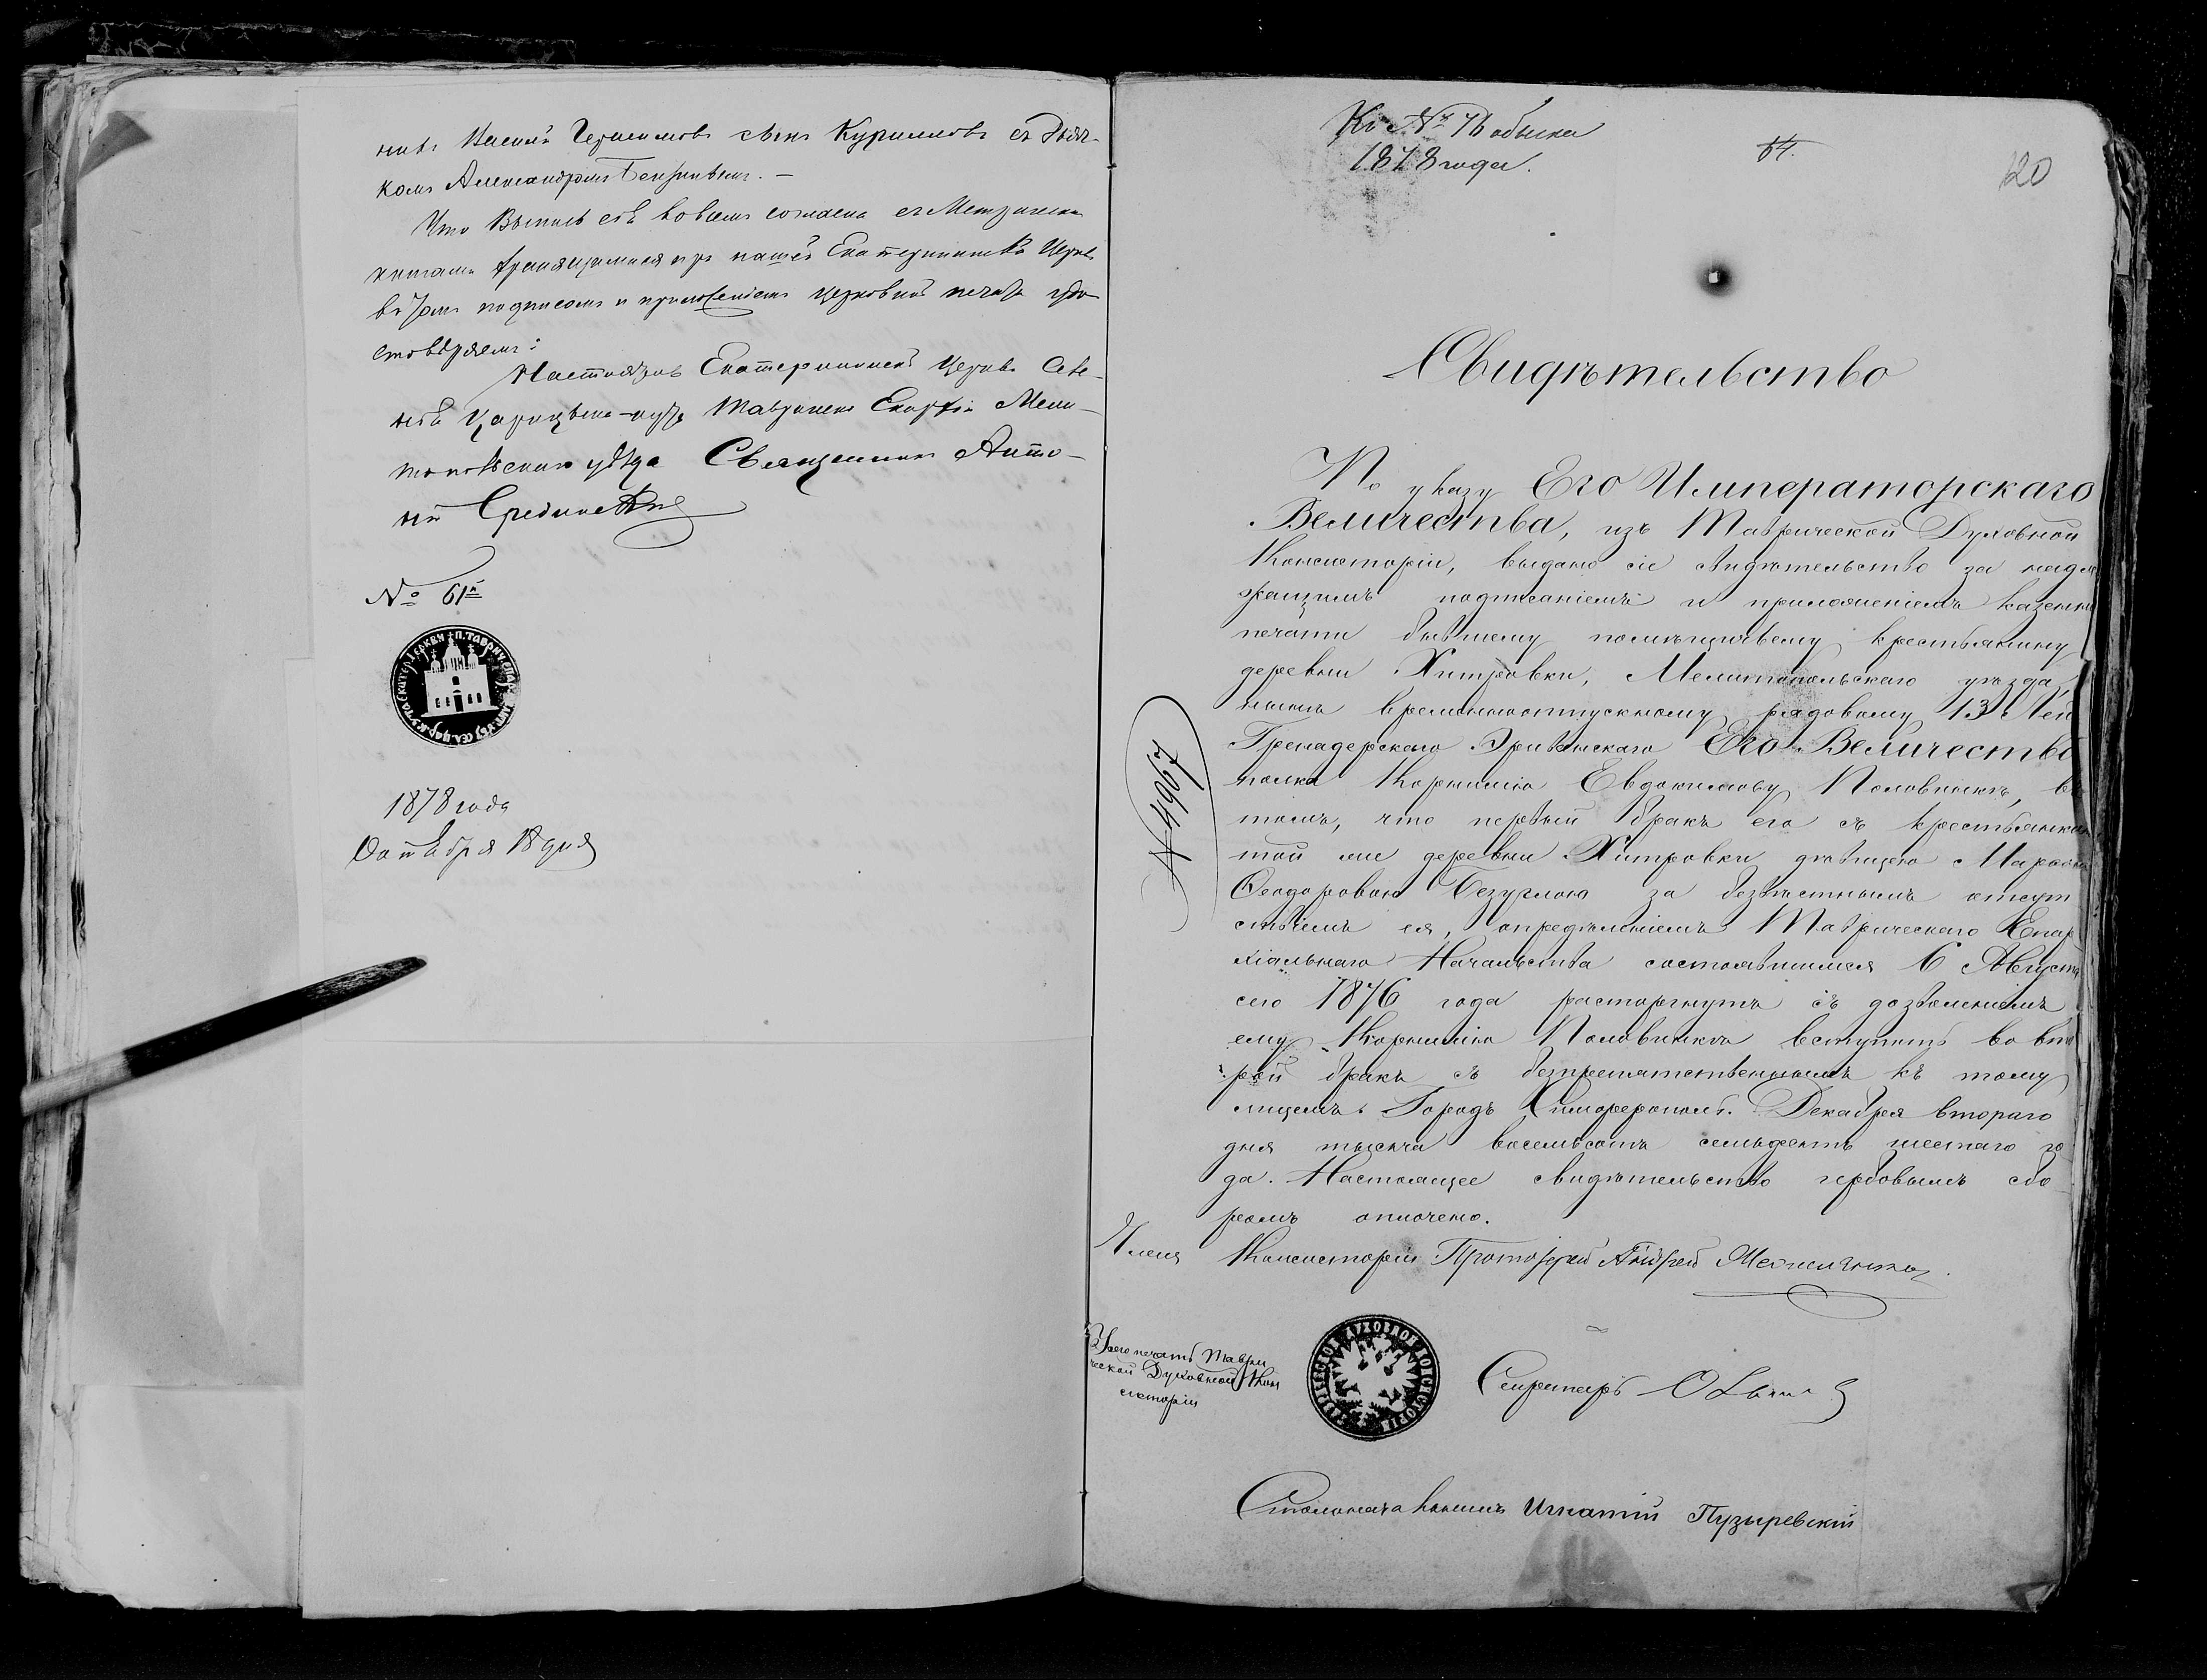 никъ Василій Герасимовъ сынъ Куриленовъ съ дьяч-
комъ Александромъ
Что Выпись сія во всемъ согласна съ Метрическ
книгами хранящимися при нашей Екатерининской Церкв
въ томъ подписомъ и приложеніемъ церковной печати удо
стовѣряемъ:
Настоятель Екатерининской Церкви Селе-
нія Царицына-кута Таврической Епархіи Мели-
топольскаго уѣзда Священникъ Анто-
ній
№ 61й
1878 года
Октября 18 дня
Къ № 76 обыска
1878 года.
64.
120
Свидѣтельство
По указу Его Императорскаго
Величества, изъ Таврической Духовной
Консисторіи, выдано сіе свидѣтельство за надле
жащимъ подписаніемъ и приложеніемъ казенно
печати бывшему помѣщичьему крестьянину
деревни Хитровки, Мелитопольскаго уѣзда,
нынѣ временноотпускному рядовому 13 Лей
Гренадерскаго Эриванскаго Его Величества
полка Корнилію Евдокимову Половинкѣ, въ
томъ, что первый бракъ его съ крестьянкою
той же деревни Хитровки дѣвицею Марѳою
Ѳеодоровою Безуглою за безвѣстнымъ отсут
ствіемъ ея, опредѣленіемъ Таврическаго Епар
хіальнаго Начальства состоявшимся 6 Августа
сего 1876 года расторгнутъ съ дозволеніемъ
ему Корнилію Половинкѣ вступить во вто
рой бракъ съ безпрепятственнымъ къ тому
лицемъ. Городъ Симферополь. Декабря втораго
дня тысяча восемьсотъ семьдесятъ шестаго го
да. Настоящее свидѣтельство гербовымъ сбо
ромъ оплочено.
Членъ Консисторіи Протоіерей Андрей
№ 4967
У сего печать Таври
ческой Духовной Кон
систоріи
Секретарь
Столоначальникъ Игнатій Пузыревскій